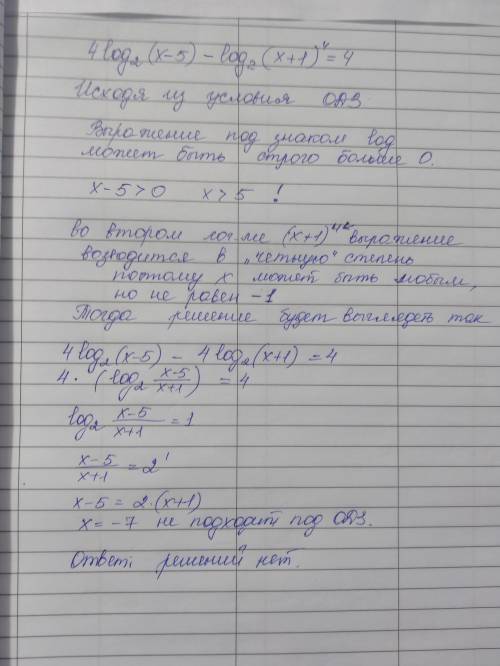 4log₂(x-5) - log₂(x+1)⁴ = 4
Исходя из условия ОДЗ.
Выражение под знаком log
может быть строго больше 0.
x-5>0 x>5 !
во втором лог-ме (x+1)⁴ выражение
возводится в „четную" степень
поэтому x может быть любым,
но не равен -1
Тогда решение будет выглядеть так
4log₂(x-5) - 4log₂(x+1) = 4
4·(log₂ (x-5)/(x+1)) = 4
log₂ (x-5)/(x+1) = 1
(x-5)/(x+1) = 2¹
x-5 = 2·(x+1)
x = -7 не подходит под ОДЗ.
Ответ: решений нет.